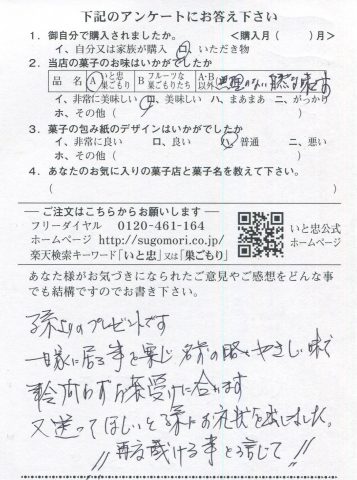 下記のアンケートにお答え下さい
1．御自分で購入されましたか。 ＜購入月（ ）月＞
イ、自分又は家族が購入 ロ、いただき物
2．当店の菓子のお味はいかがでしたか
品 名 A いと忠巣ごもり B フルーツな巣ごもりたち A・B以外
イ、非常に美味しい ロ、美味しい ハ、まあまあ ニ、がっかり
ホ、その他（ ）
3．菓子の包み紙のデザインはいかがでしたか
イ、非常に良い ロ、良い ハ、普通 ニ、悪い
ホ、その他（ ）
4．あなたのお気に入りの菓子店と菓子名を教えて下さい。
（ ）
― ご注文はこちらからお願いします ―
フリーダイヤル 0120-461-164
ホームページ http://sugomori.co.jp/
楽天検索キーワード「いと忠」又は「巣ごもり」
いと忠公式
ホームページ
あなた様がお気づきになられたご意見やご感想をどんな事
でも結構ですのでお書き下さい。
孫よりのプレゼントです
一緒に居る事を 名前の やさしい味で
年齢問わずお茶受けに合います
又送ってほしいと孫にお礼状を出しました。
再度戴ける事を信じて!!